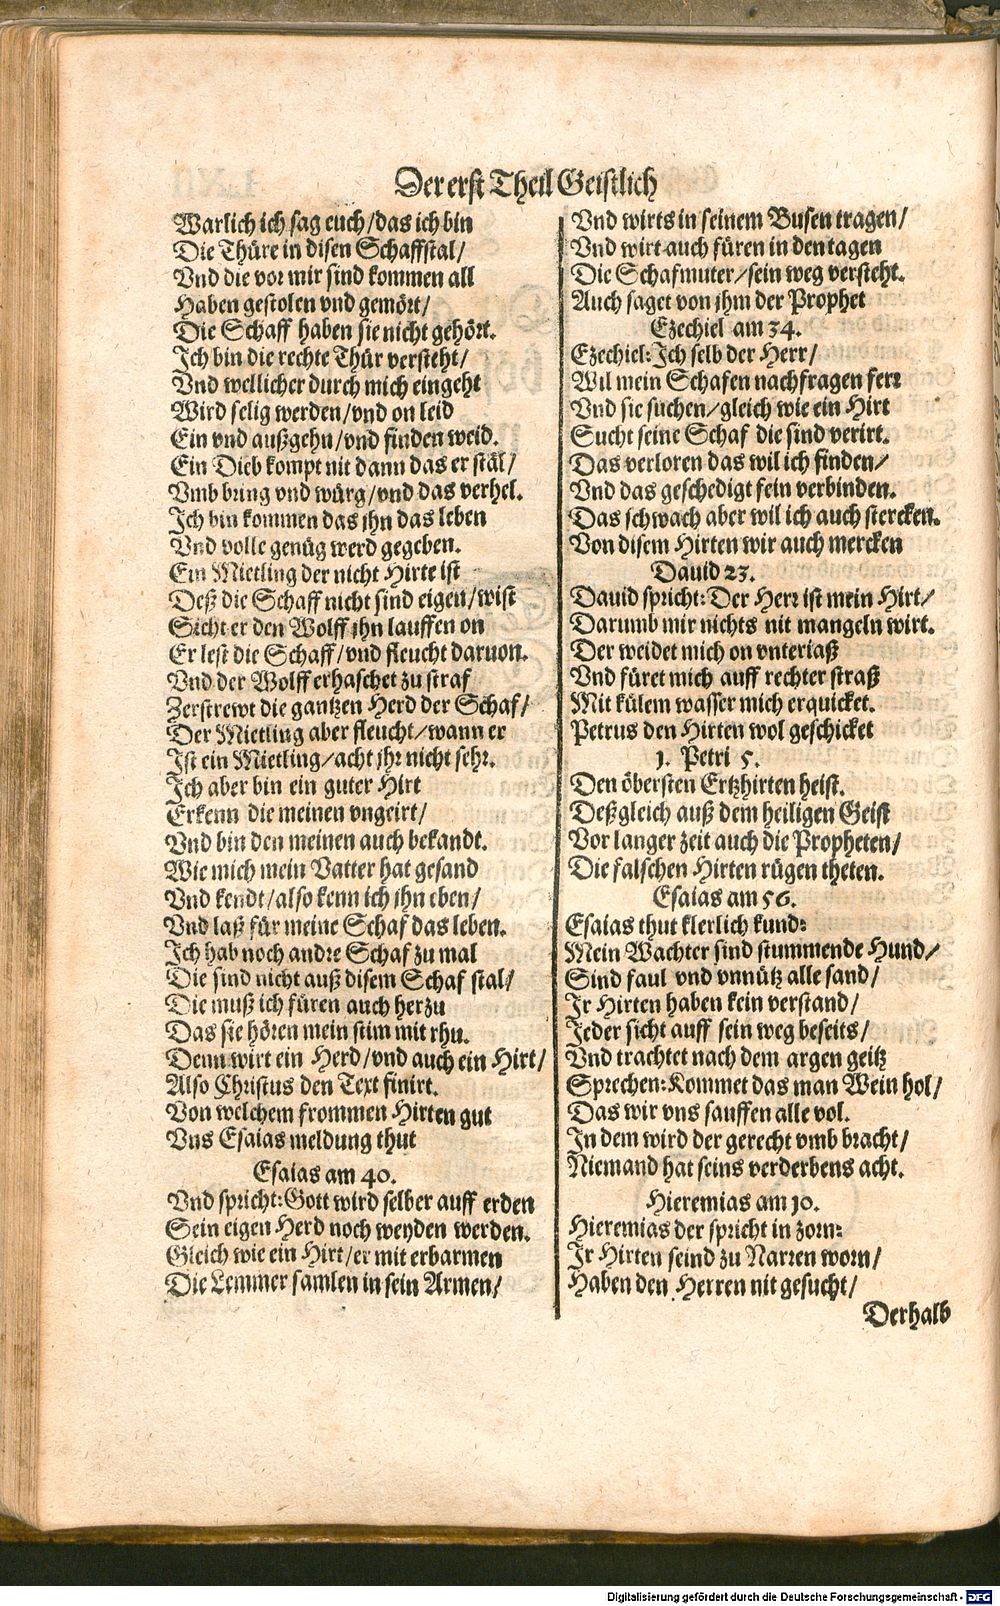 Der erst Theil Geistlich
Warlich ich sag euch/das ich bin
Die Thüre in disen Schaffstal/
Vnd die vor mir sind kommen all
Haben gestolen vnd gemört/
Die Schaff haben sie nicht gehört.
Ich bin die rechte Thür versteht/
Vnd wellicher durch mich eingeht
Wird selig werden/vnd on leid
Ein vnd außgehn/vnd finden weid.
Ein Dieb kompt nit dann das er stäl/
Vmb bring vnd würg/vnd das verhel.
Ich bin kommen das ihn das leben
Vnd volle genüg werd gegeben.
Ein Mietling der nicht Hirte ist
Deß die Schaff nicht sind eigen/wist
Sicht er den Wolff ihn lauffen on
Er lest die Schaff/vnd fleucht daruon.
Vnd der Wolff erhaschet zu straf
Zerstrewt die gantzen Herd der Schaf/
Der Mietling aber fleucht/wann er
Ist ein Mietling/acht ihr nicht sehr.
Ich aber bin ein guter Hirt
Erkenn die meinen vngeirt/
Vnd bin den meinen auch bekandt.
Wie mich mein Vatter hat gesand
Vnd kendt/also kenn ich ihn eben/
Vnd laß für meine Schaf das leben.
Ich hab noch andre Schaf zu mal
Die sind nicht auß disem Schaf stal/
Die muß ich füren auch herzu
Das sie hören mein stim mit rhu.
Denn wirt ein Herd/vnd auch ein Hirt/
Also Christus den Text finirt.
Von welchem frommen Hirten gut
Vns Esaias meldung thut
Esaias am 40.
Vnd spricht: Gott wird selber auff erden
Sein eigen Herd noch weyden werden.
Gleich wie ein Hirt/er mit erbarmen
Die Lemmer samlen in sein Armen/
Vnd wirts in seinem Busen tragen/
Vnd wirt auch füren in den tagen
Die Schafmuter/sein weg versteht.
Auch saget von ihm der Prophet
Ezechiel am 34.
Ezechiel: Ich selb der Herr/
Wil mein Schafen nachfragen ferr
Vnd sie suchen/gleich wie ein Hirt
Sucht seine Schaf die sind verirt.
Das verloren das wil ich finden/
Vnd das geschedigt fein verbinden.
Das schwach aber wil ich auch stercken.
Von disem Hirten wir auch mercken
Dauid 23.
Dauid spricht: Der Herr ist mein Hirt/
Darumb mir nichts nit mangeln wirt.
Der weidet mich on vnterlaß
Vnd füret mich auff rechter straß
Mit külem wasser mich erquicket.
Petrus den Hirten wol geschicket
1. Petri 5.
Den öbersten Ertzhirten heist.
Deßgleich auß dem heiligen Geist
Vor langer zeit auch die Propheten/
Die falschen Hirten rügen theten.
Esaias am 56.
Esaias thut klerlich kund:
Mein Wachter sind stummende Hund/
Sind faul vnd vnnütz alle sand/
Ir Hirten haben kein verstand/
Jeder sicht auff sein weg beseits/
Vnd trachtet nach dem argen geitz
Sprechen: Kommet das man Wein hol/
Das wir vns sauffen alle vol.
In dem wird der gerecht vmb bracht/
Niemand hat seins verderbens acht.
Hieremias am 10.
Hieremias der spricht in zorn:
Ir Hirten seind zu Narren worn/
Haben den Herren nit gesucht/
Derhalb
Digitalisierung gefördert durch die Deutsche Forschungsgemeinschaft - DFG